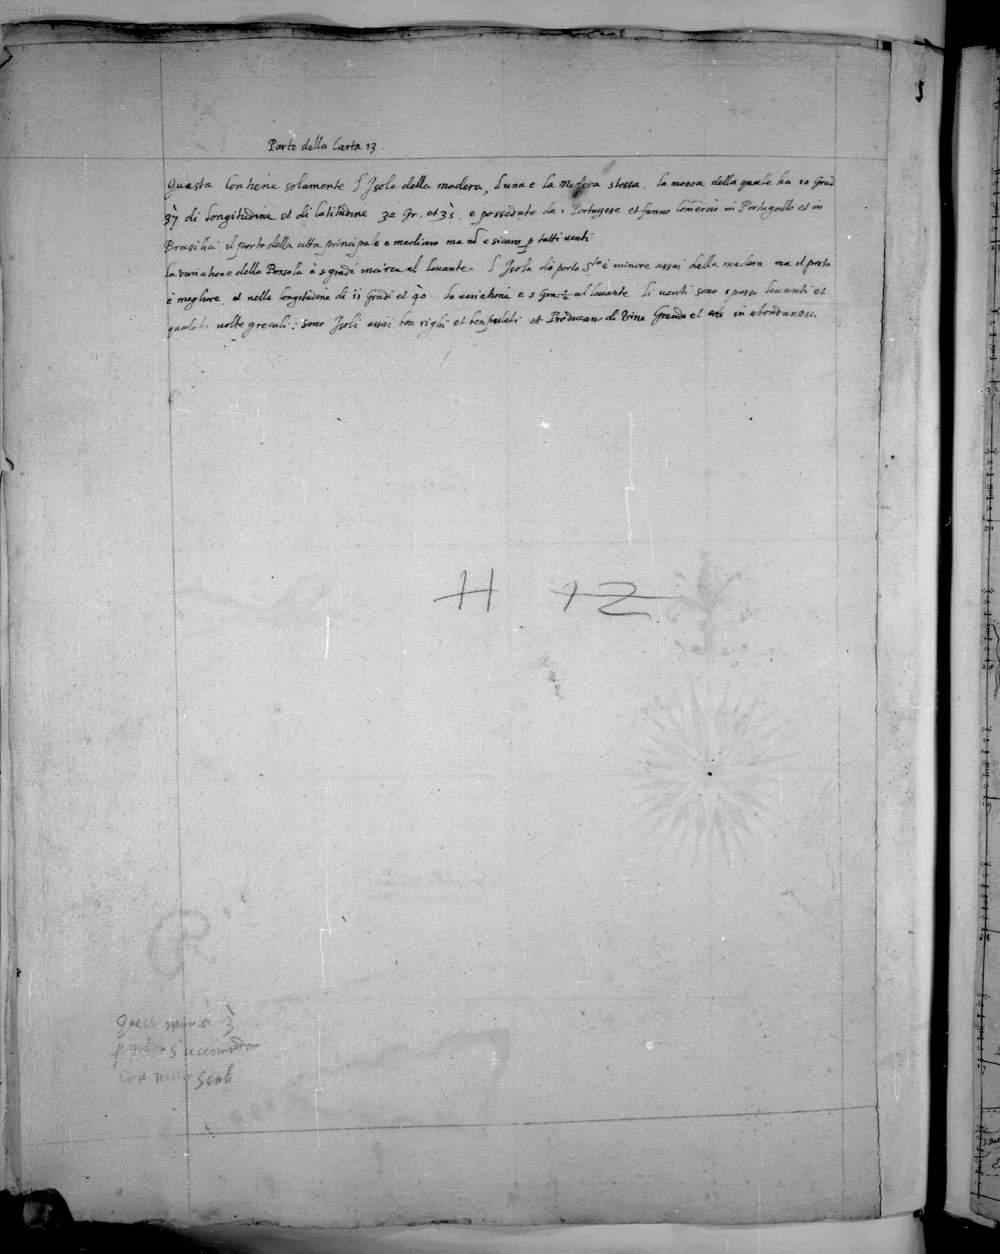 00084102
Parte della Carta 13.
Questa Contiene solamente l'Isole della madera, l'una e la Madera stessa. la mezza della quale ha 10 Grad
37 di Longitudine et di latitudine 32 Gr. et 35. e posseduto da Portugese et fanno Comercio in Portugallo et in
Brasilia il porto della citta principale e mediocro ma nō e sicuro p tutti venti
la variatione della Bossola è 5 gradi incirca al levante. l'Isola di porto Sto è minore assai della madera ma il porto
è megliore et nella longitudine di 11 Gradi et 40. la variatione e 5 Gra: al levante li venti sono spesso levanti et
qualche volte grecali: sono Isoli assai ben et ben et Producano di Vino Grande et in abondanza.
H 12
Questo
s'accomodar
Con